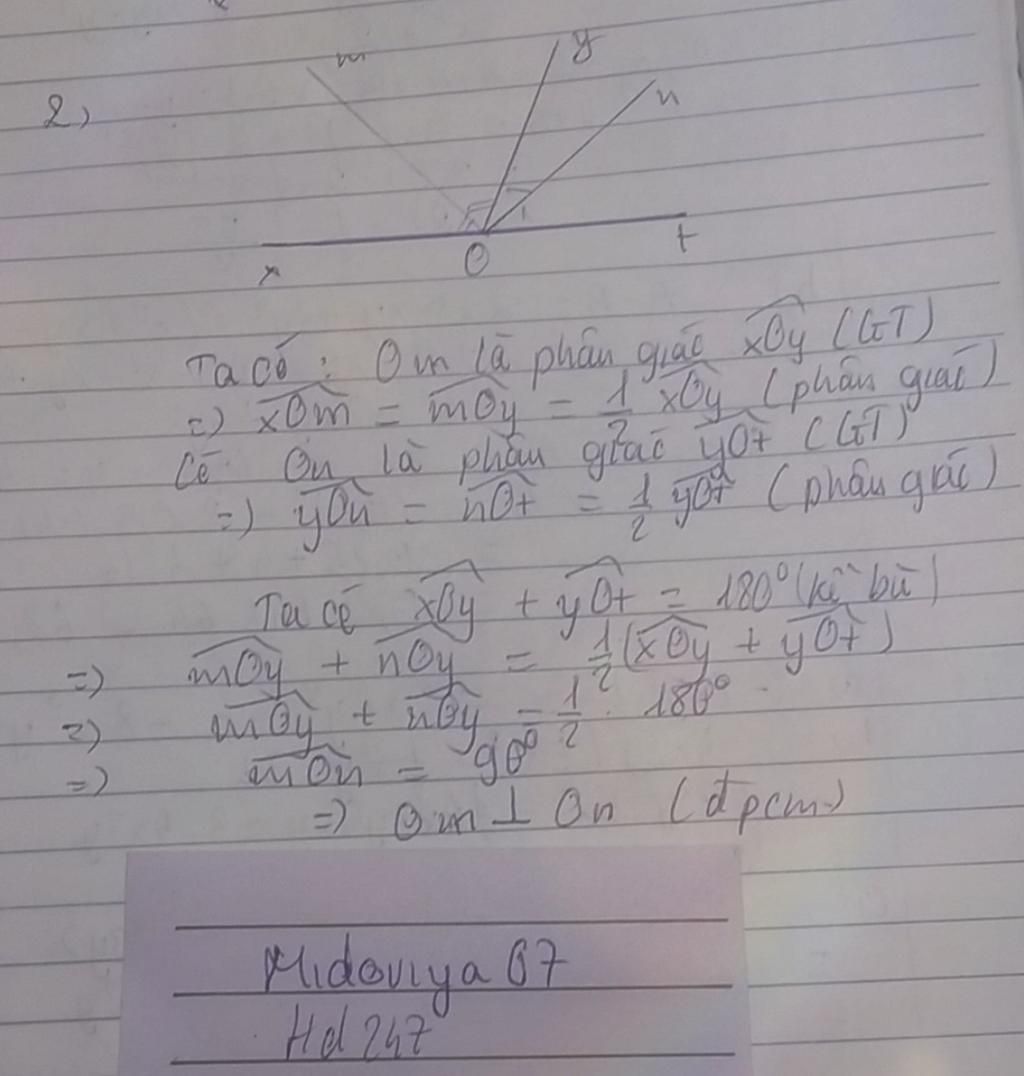 2)
m
y
n
x
O
t
Ta có : Om là phân giác xOy (GT)
=) xOm = mOy = 1/2 xOy (phân giác)
Có On là phân giác yOt (GT)
=) yOn = nOt = 1/2 yOt (phân giác)
Ta có xOy + yOt = 180° (kề bù)
=) mOy + nOy = 1/2 (xOy + yOt)
=) mOy + nOy = 1/2 . 180°
=) mOn = 90°
=) Om ⊥ On (đpcm)
Midoviya 07
Hd 247